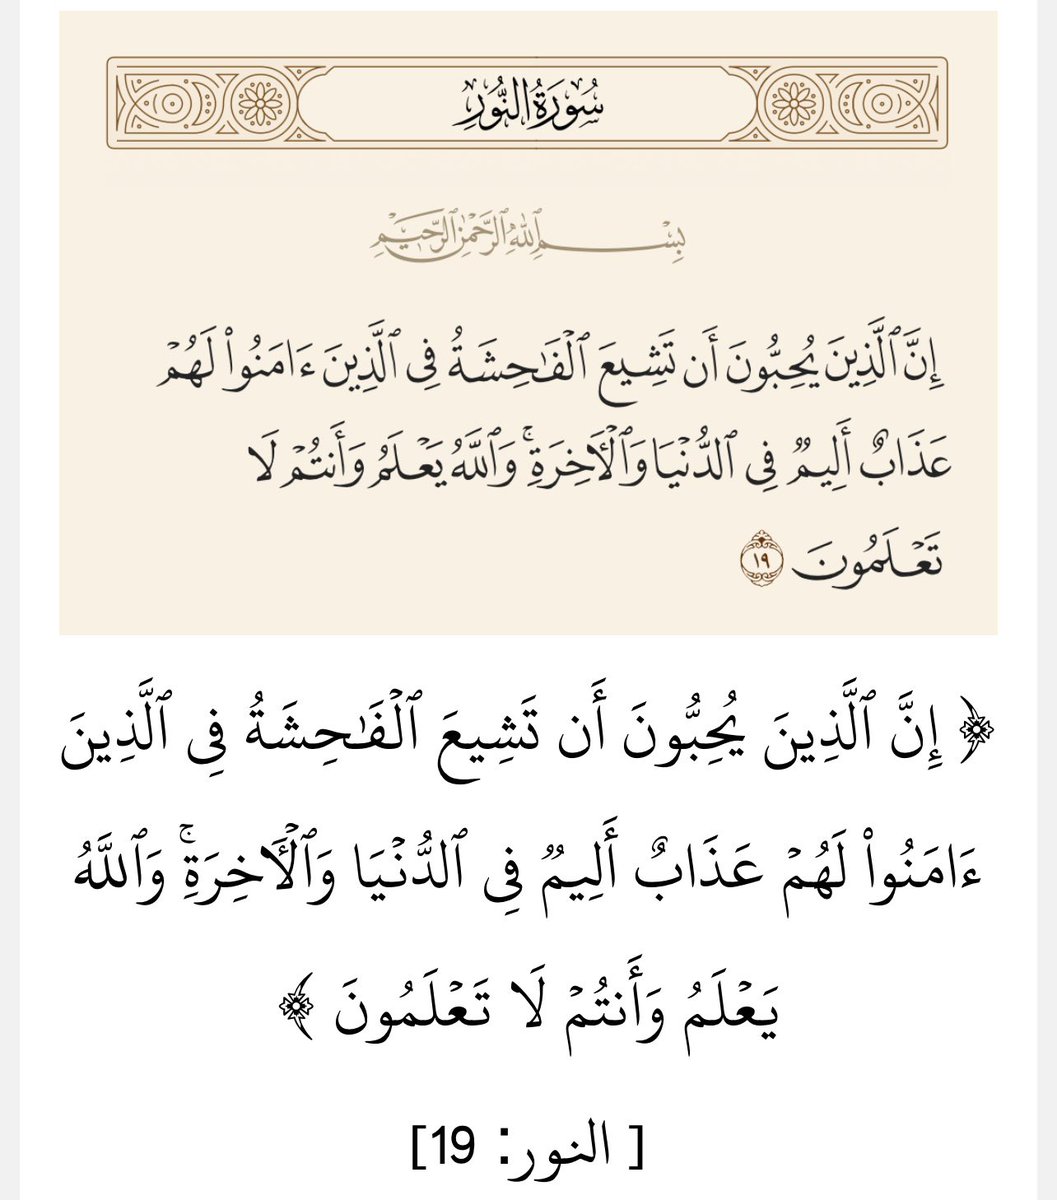 سُورَةُ النُّورِ
بِسْمِ ٱللَّهِ ٱلرَّحْمَٰنِ ٱلرَّحِيمِ
إِنَّ ٱلَّذِينَ يُحِبُّونَ أَن تَشِيعَ ٱلْفَٰحِشَةُ فِى ٱلَّذِينَ ءَامَنُوا۟ لَهُمْ
عَذَابٌ أَلِيمٌ فِى ٱلدُّنْيَا وَٱلْأَخِرَةِ ۚ وَٱللَّهُ يَعْلَمُ وَأَنتُمْ لَا
تَعْلَمُونَ ١٩
﴿ إِنَّ ٱلَّذِينَ يُحِبُّونَ أَن تَشِيعَ ٱلْفَٰحِشَةُ فِى ٱلَّذِينَ
ءَامَنُوا۟ لَهُمْ عَذَابٌ أَلِيمٌ فِى ٱلدُّنْيَا وَٱلْأَخِرَةِ ۚ وَٱللَّهُ
يَعْلَمُ وَأَنتُمْ لَا تَعْلَمُونَ ﴾
[ النور: 19]